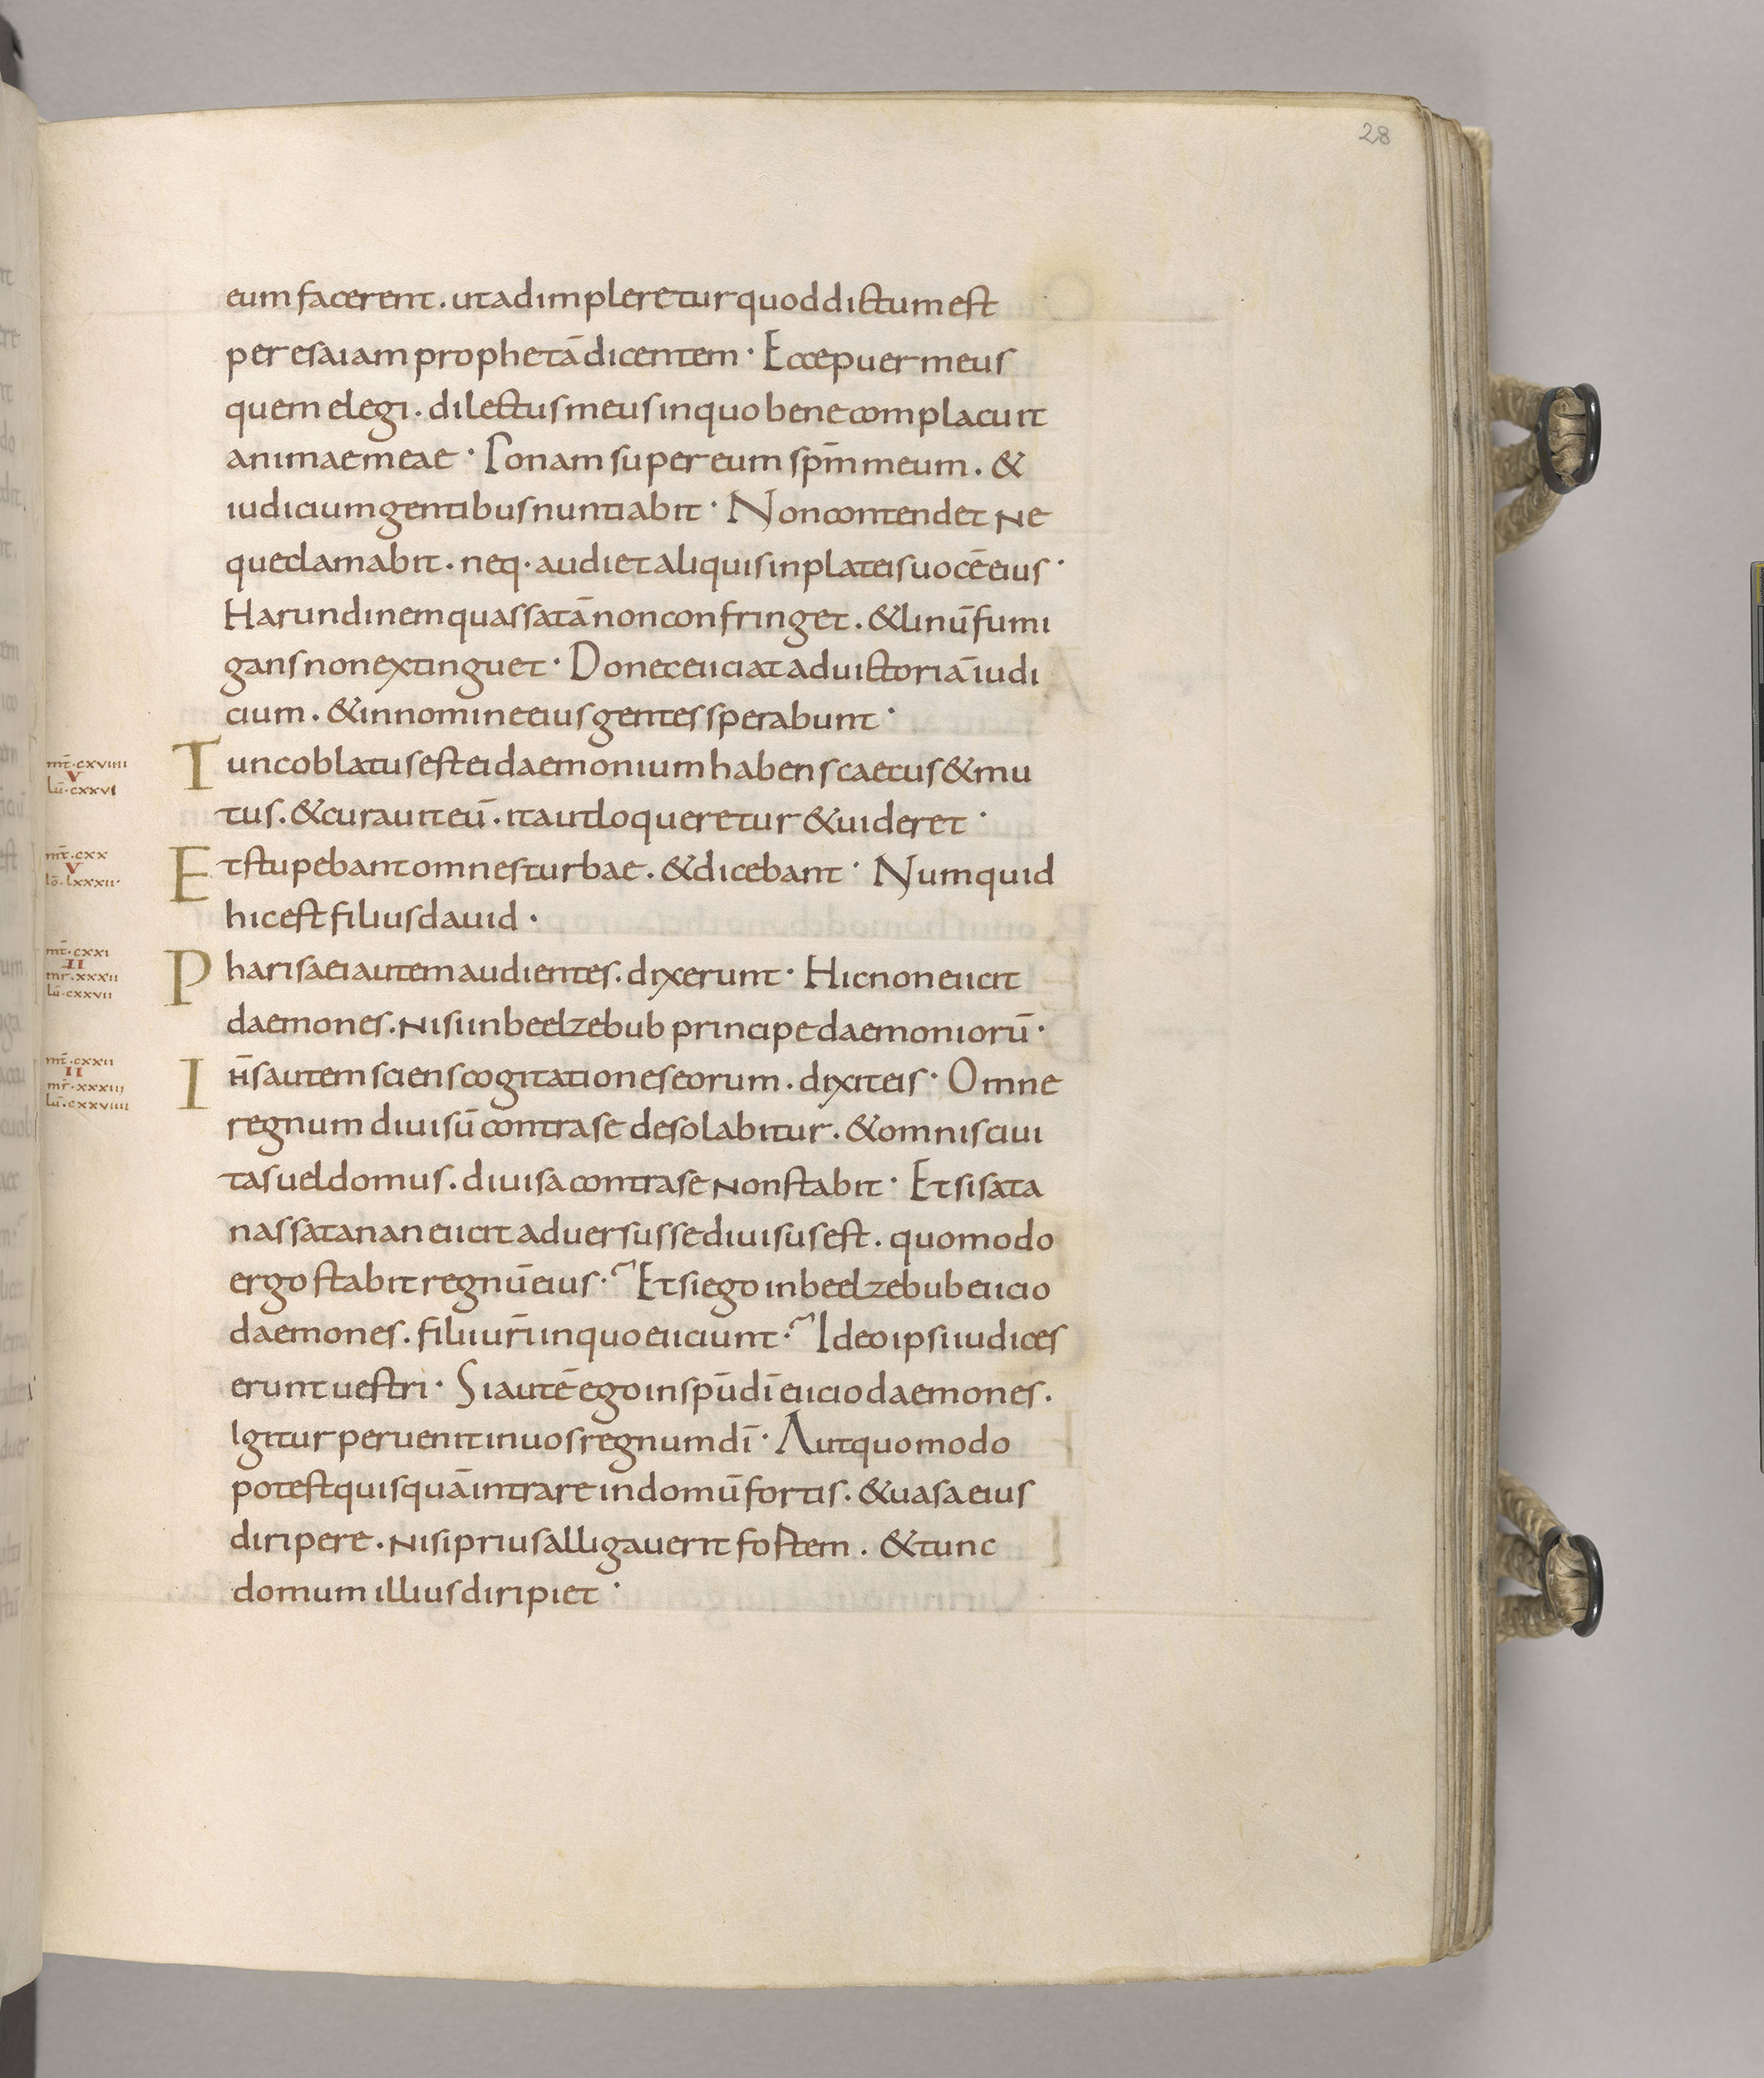 28
eum facerent. ut adimpleretur quod dictum est
per esaiam prophetā dicentem· Ecce puer meus
quem elegi. dilectus meus in quo bene complacuit
animae meae· Ponam super eum sp̄m meum. &
iudicium gentibus nuntiabit· Non contendet ne
que clamabit. neq· audiet aliquis in plateis uocē eius·
Harundinem quassatā non confringet. & linū fumi
gans non extinguet· Donec eiiciat ad uictoriā iudi
cium. & in nomine eius gentes sperabunt·
mt̄·cxviiii
V
lū·cxxvi
Tunc oblatus est ei daemonium habens caecus & mu
tus. & curauit eū. ita ut loqueretur & uideret·
mt̄·cxx
V
Iō·lxxxii·
Et stupebant omnes turbae. & dicebant· Numquid
hic est filius dauid·
mt̄·cxxi
II
mr̄·xxxii
lū·cxxvii
Pharisaei autem audientes. dixerunt· Hic non eiicit
daemones. nisi in beelzebub principe daemoniorū·
mt̄·cxxii
II
mr̄·xxxiii
lū·cxxviiii
Ih̄s autem sciens cogitationes eorum. dixit eis· Omne
regnum diuisū contra se desolabitur. & omnis ciui
tas uel domus. diuisa contra se non stabit· Et si sata
nas satanan eiicit aduersus se diuisus est. quomodo
ergo stabit regnū eius·? Et si ego in beelzebub eiicio
daemones. filii ur̄i in quo eiiciunt·? Ideo ipsi iudices
erunt uestri· Si autē ego in spū dī eiicio daemones.
Igitur peruenit in uos regnum dī· Aut quomodo
potest quisquā intrare in domū fortis. & uasa eius
diripere. nisi prius alligauerit fostem. & tunc
domum illius diripiet·